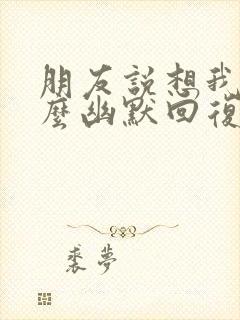 朋友說想我
麼幽默回復
裘夢